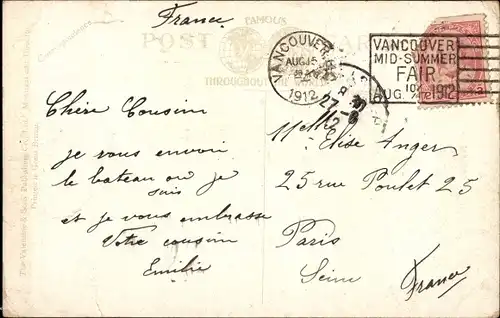 France
FAMOUS
POST CARD
THROUGHOUT THE WORLD
Correspondence
The Valentine & Sons Publishing Co. Ltd. Montreal and Toronto
Printed in Great Britain
VANCOUVER
AUG 15
1912
27-8
12
VANCOUVER
MID-SUMMER
FAIR
AUG. 1912
Chère Cousin
je vous envoi
le bateau ou je
suis
et je vous embrasse
Votre cousin
Emilie
Melle Elise Anger
25 rue Poulet 25
Paris
Seine
France